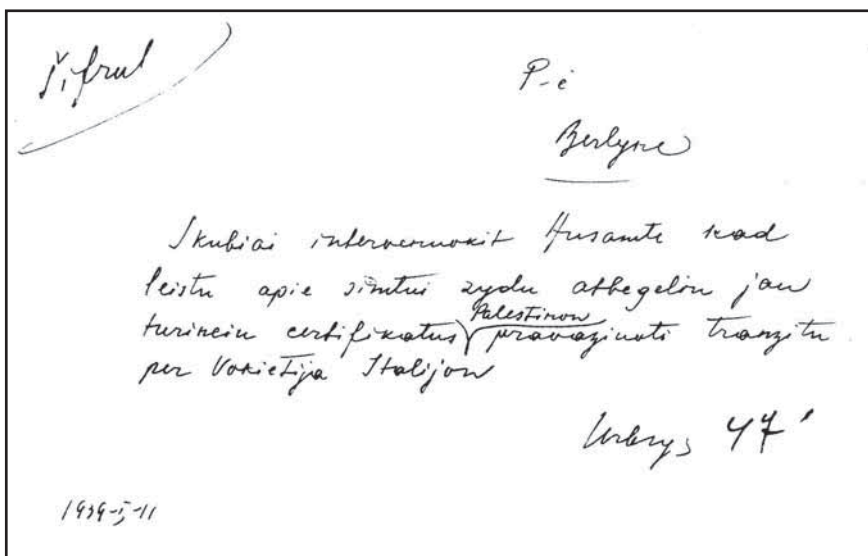 Šifrul
P-ė
Berlyne
Skubiai intervenuokit Ausamte kad
leistu apie simtui zydu atbegeliu jau
turinciu certifikatus Palestinon pravazinoti tranzitu
per Vokietija Italijon
Urbrys 47